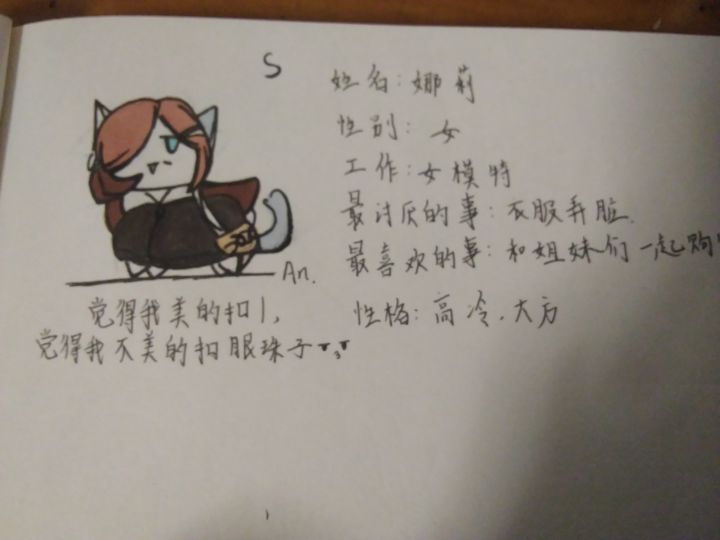 S
姓名:娜莉
性别:女
工作:女模特
最讨厌的事:衣服弄脏.
最喜欢的事:和姐妹们一起购
性格:高冷.大方
An.
觉得我美的扣1,
觉得我不美的扣眼珠子